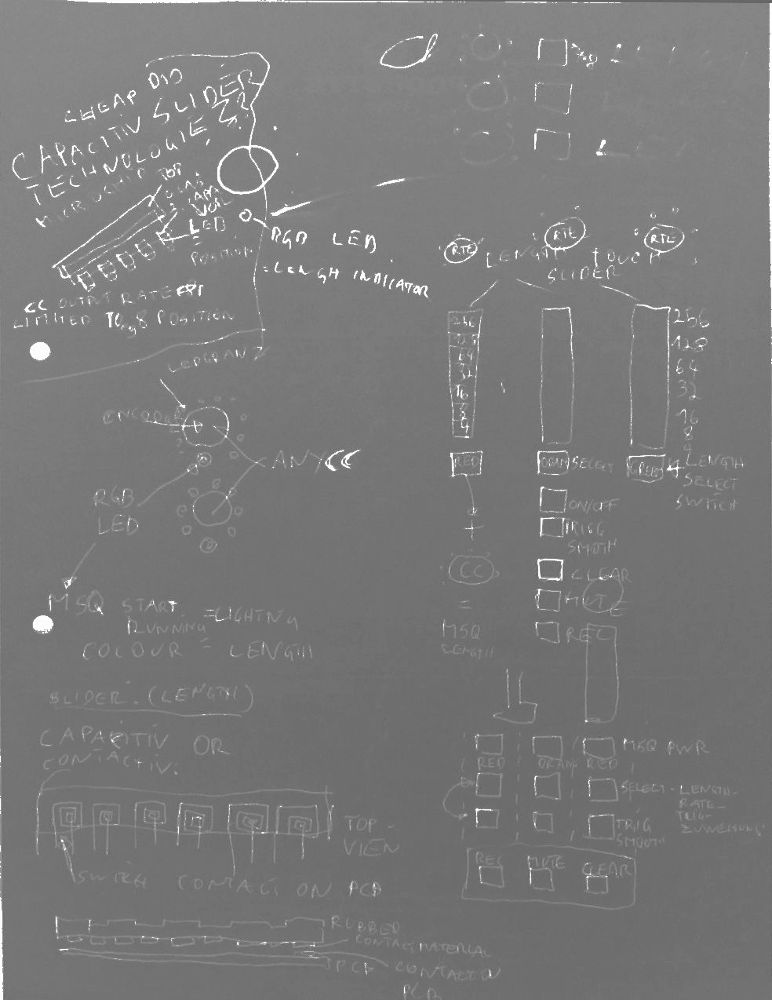 CHEAP DIO
CAPACITIV SLIDER
TECHNOLOGIE
MICROCHIP
LED
=
POSITION
CC OUTPUT RATE
LIMITED TO 8 POSITION
RGB LED
=LENGH INDICATOR
RTE
RTE
RTE
LENGTH TOUCH
SLIDER
256
128
64
32
16
8
4
256
128
64
32
16
8
4
LENGTH
SELECT
SWITCH
RED
SELECT
ON/OFF
TRIGG
SMOTH
CLEAR
MUTE
REC
+
CC
=
MSQ
LENGTH
ENCODER
ANY CC
RGB
LED
MSQ START
RUNNING =LIGHTNG
COLOUR = LENGTH
SLIDER. (LENGTH)
CAPACITIV OR
CONTACTIV.
TOP-
VIEW
SWITCH CONTACT ON PCB
RUBBER
CONTACT MATERIAL
CONTACT ON
PCB
MSQ PWR
RED
RED
SELECT - LENGTH-
RATE-
TRIG-
TRIG
SMOOTH
REC
MUTE
CLEAR